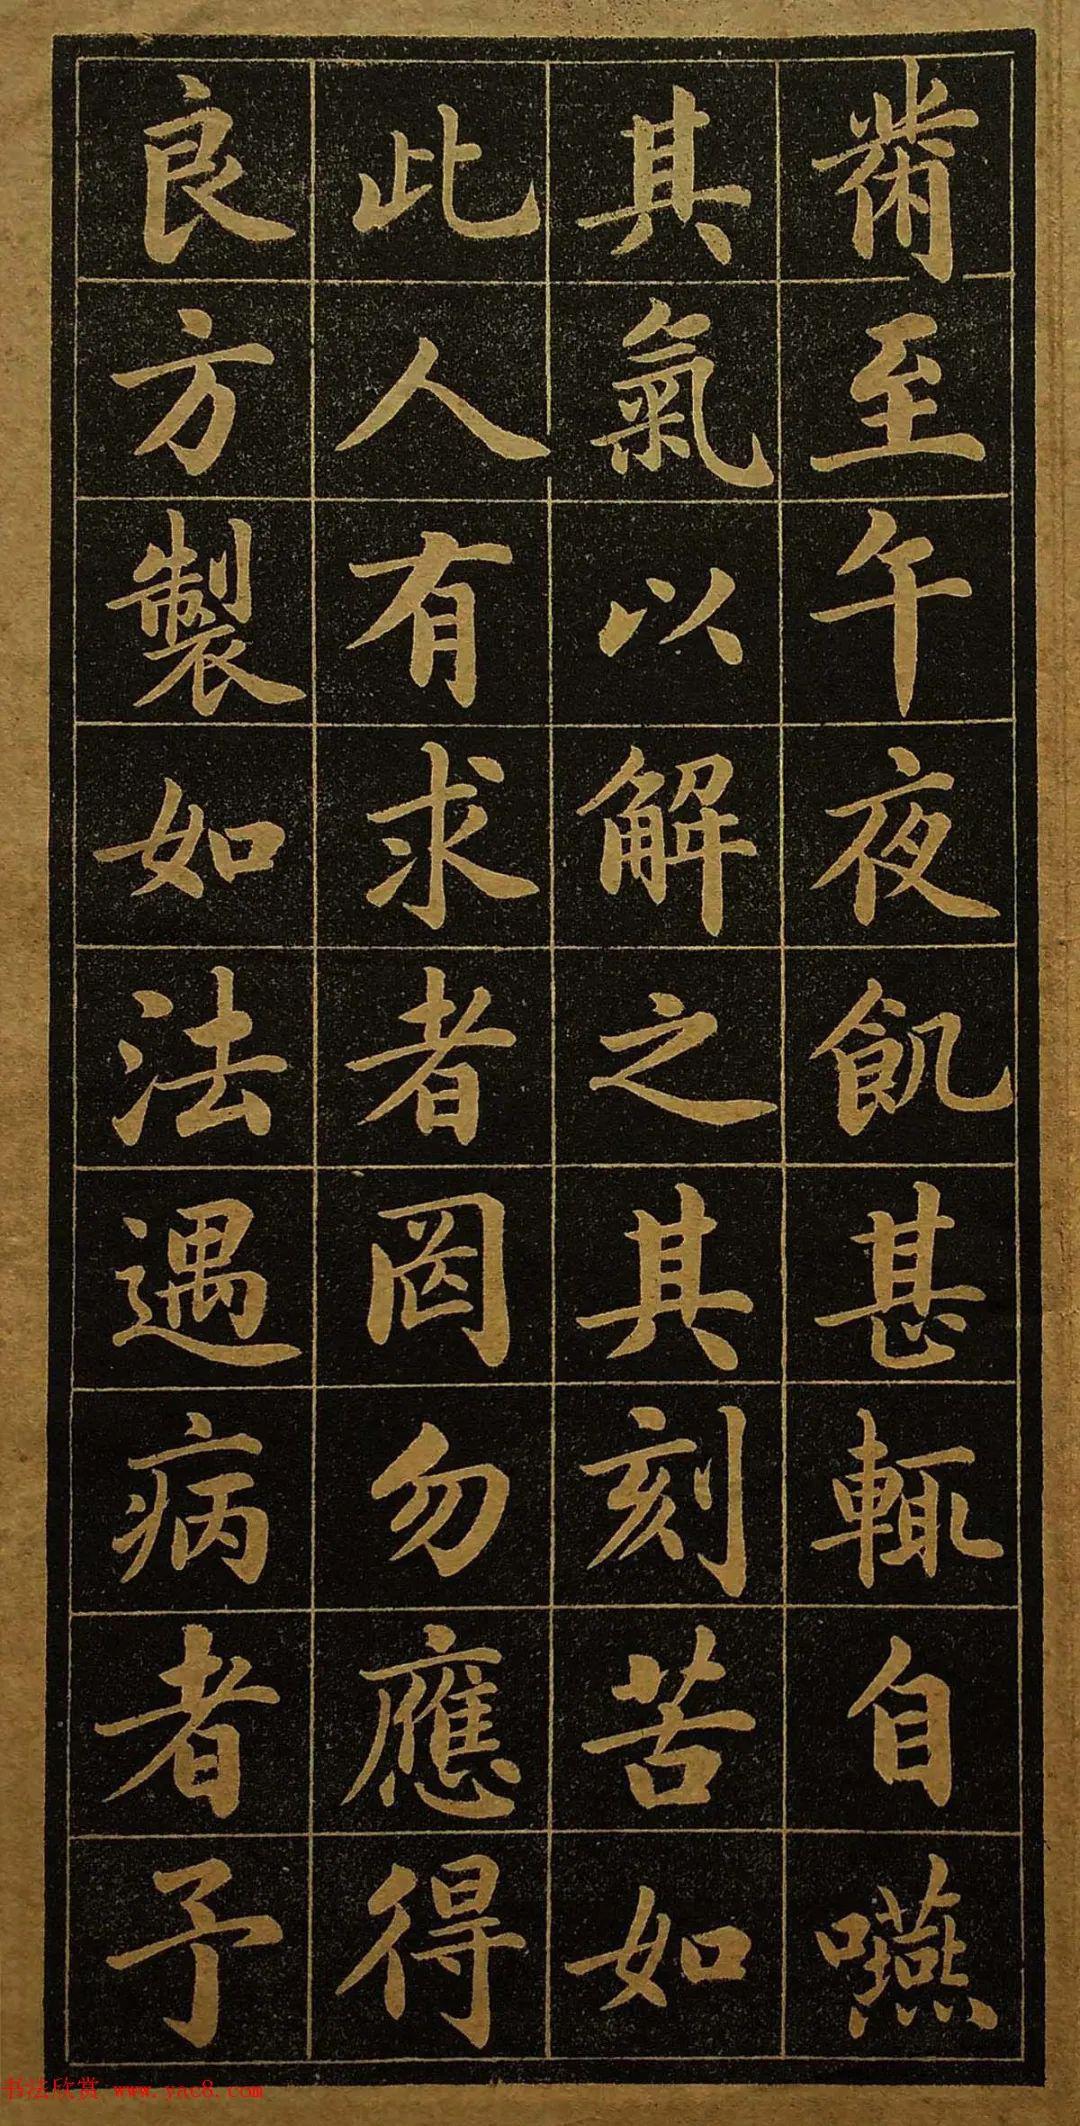 黹至午夜飢甚輒自嚥
其氣以解之其刻苦如
此人有求者罔勿應得
良方製如法遇病者予
书法欣赏 www.yac8.com